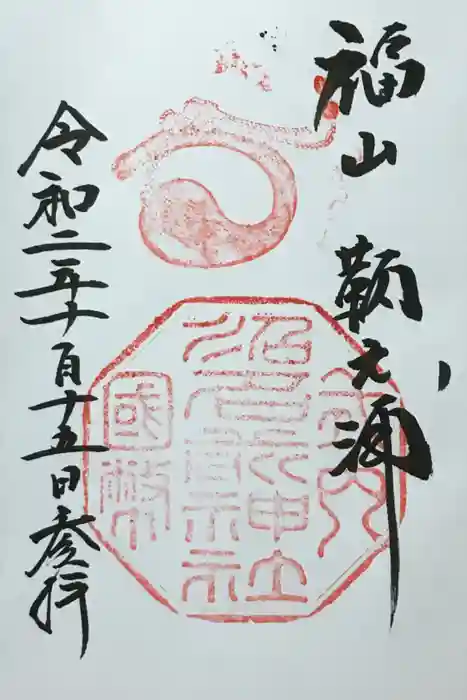 福山 鞆之浦
式内
沼名前神社
國幣
令和二年十一月十五日参拝